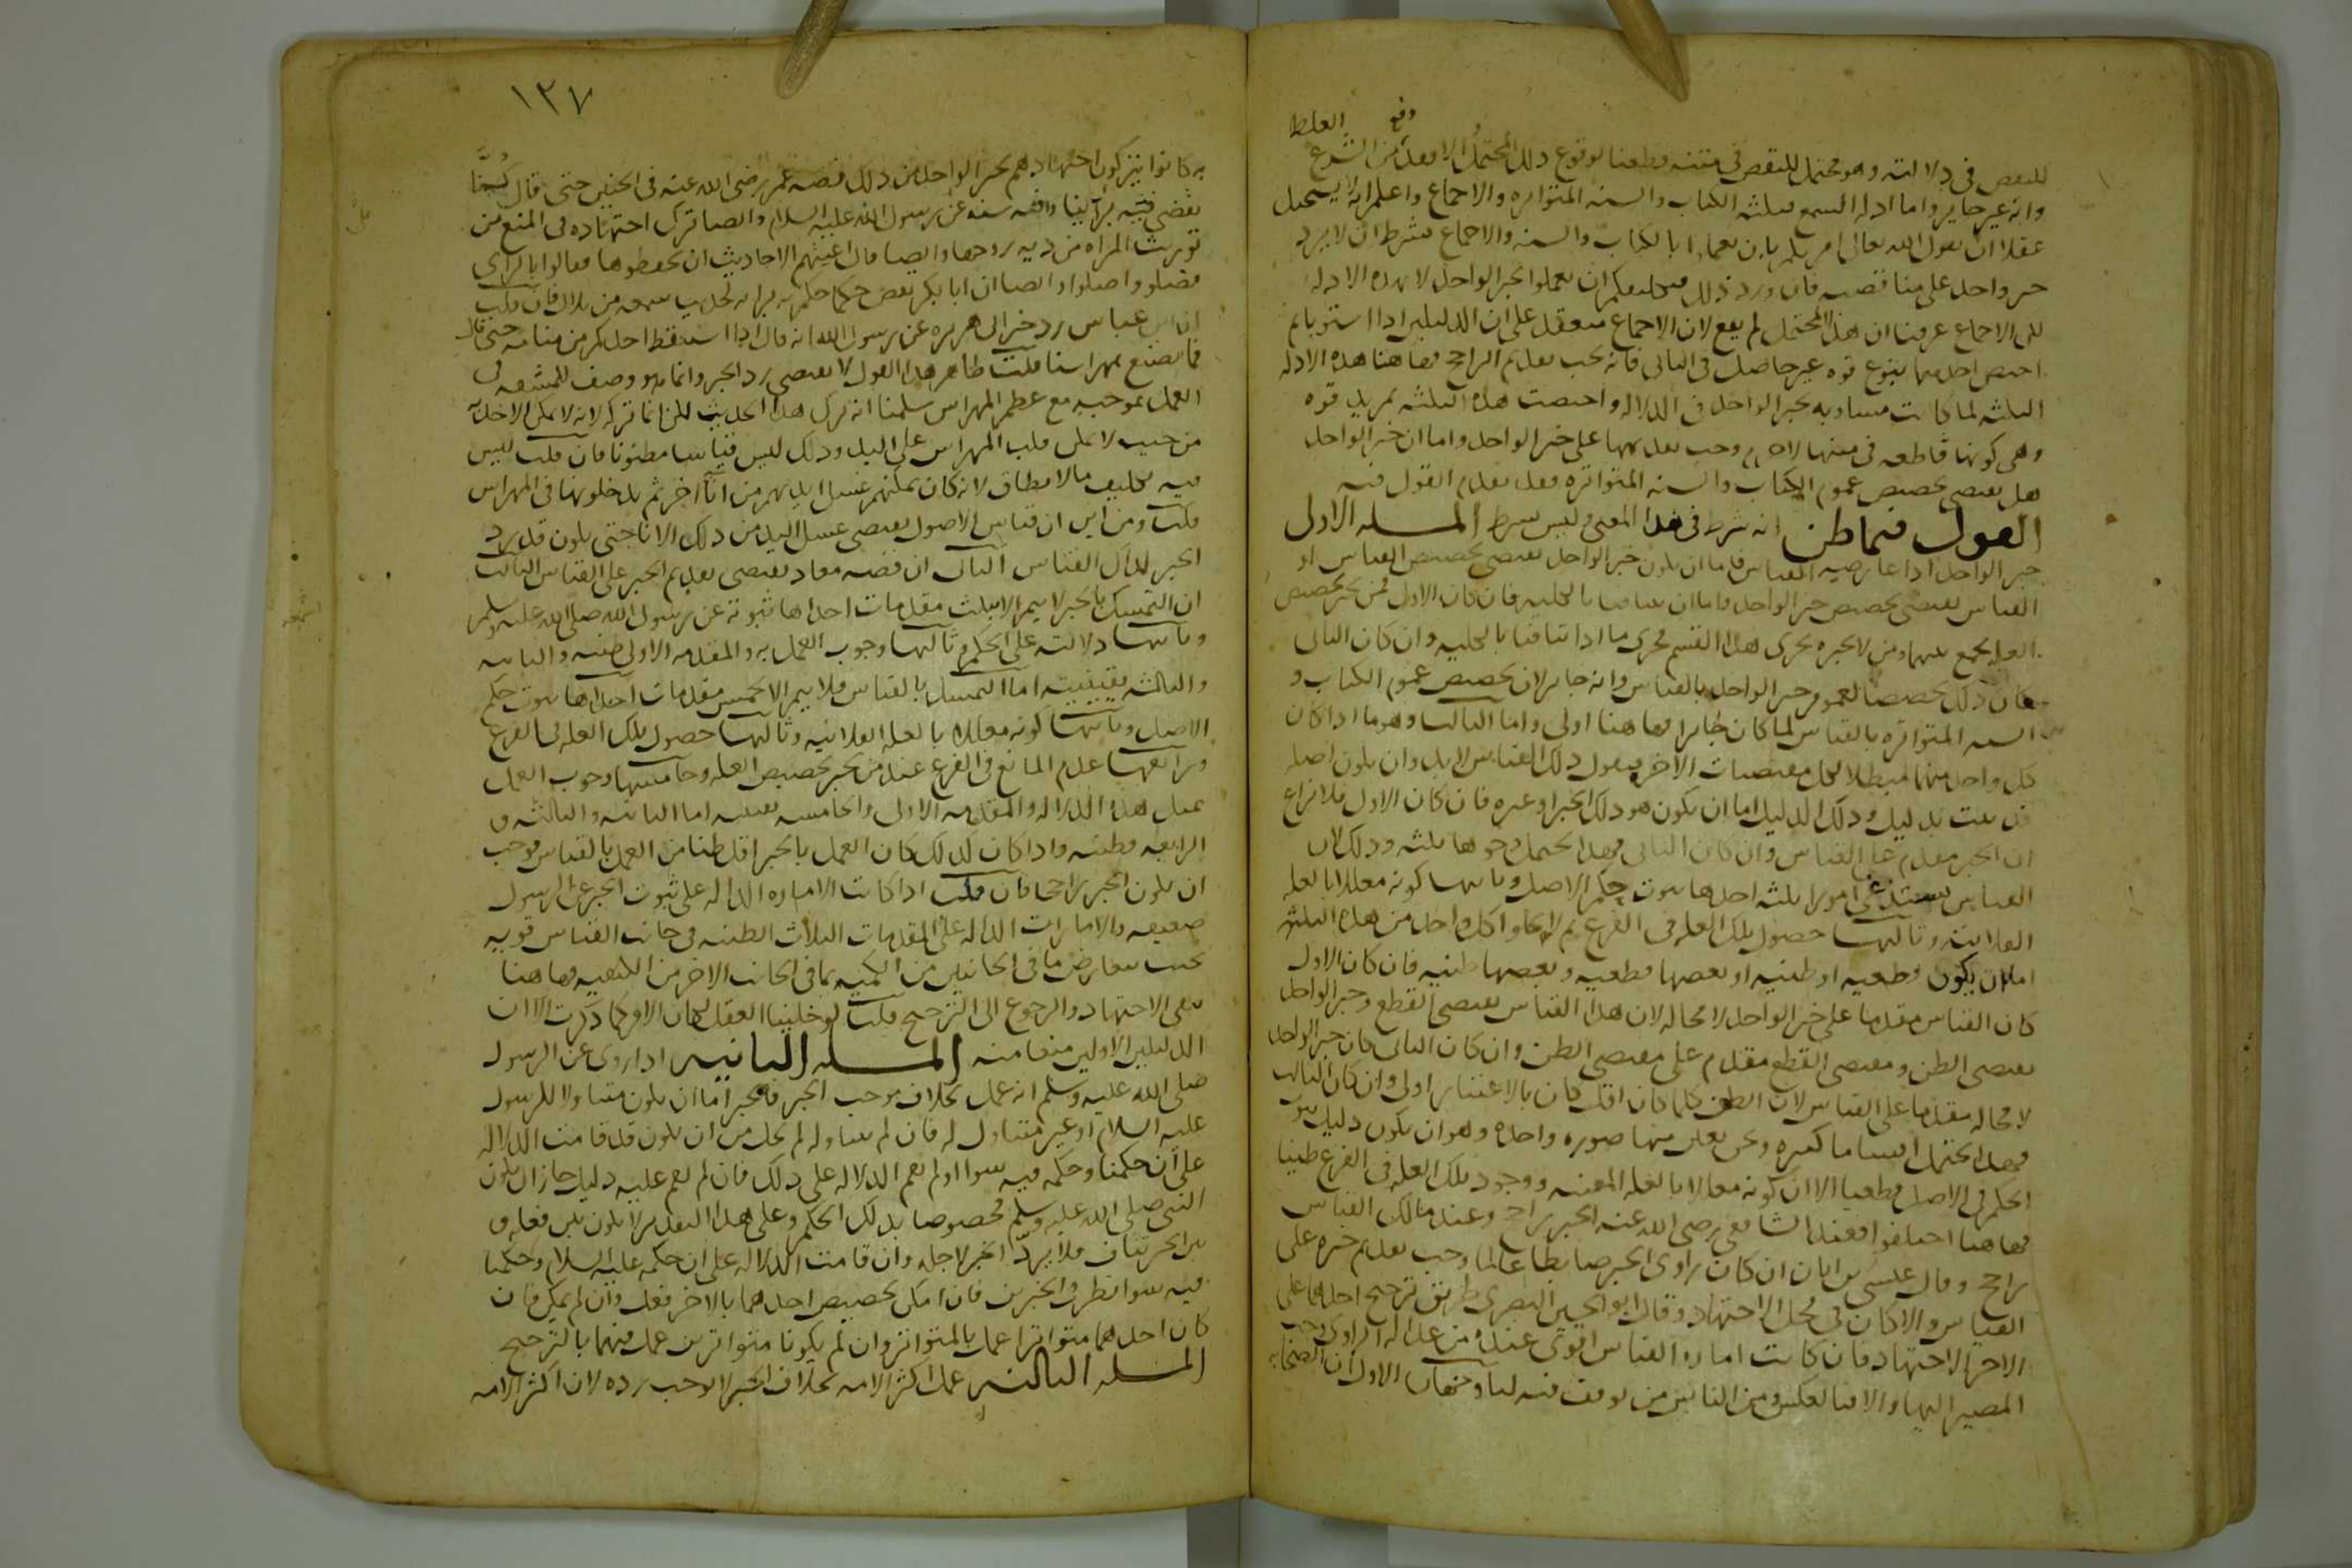 وقع الغلط
للنقص في دلالته وهو محتمل للنقص في متنه قطعنا بوقوع ذلك المحتمل والا فقد من الشرع
وانه غير جايز واما ادلة السمع فثلثه الكتاب والسنه المتواتره والاجماع واعلم انه لا يستحيل
عقلا ان يقول الله تعالى امرتكم بان تعملوا بالكتاب والسنه والاجماع بشرط ان لا يرد
خبر واحد على مناقضته فان ورد ذلك فعليكم ان تعملوا بخبر الواحد لا بهذه الادله
لكن الاجماع عرفنا ان هذا المحتمل لم يقع لان الاجماع منعقد على ان الدليلين اذا استويا ثم
اختص احدهما بنوع قوه غير حاصل في الثاني فانه يجب تقديم الراجح فهاهنا هذه الادله
الثلثه لما كانت مساويه بخبر الواحد في الدلاله واختصت هذه الثلثه بمزيد قوه
وهي كونها قاطعه في متنها لا جرم وجب تقديمها على خبر الواحد واما ان خبر الواحد
هل يقتضي تخصيص عموم الكتاب والسنه المتواتره فقد تقدم القول فيه
القول فيما ظن انه شرط في هذا المعنى وليس بشرط المسله الاولى
خبر الواحد اذا عارضه القياس فاما ان يكون خبر الواحد يقتضي تخصيص القياس او
القياس يقتضي تخصيص خبر الواحد واما ان يتنافيا بالكليه فان كان الاول فمن يجيز تخصيص
العله يجمع بينهما ومن لا يجيزه يجرى هذا القسم مجرى ما اذا تنافيا بالكليه وان كان الثاني
كان ذلك تخصيصا لعموم خبر الواحد بالقياس وانه جايز لان تخصيص عموم الكتاب و
السنه المتواتره بالقياس لما كان جايزا فهاهنا اولى واما الثالث وهو ما اذا كان
كل واحد منهما مبطلا لكل مقتضيات الاخر فنقول ذلك القياس لا بد وان يكون اصله
قد ثبت بدليل وذلك الدليل اما ان يكون هو ذلك الخبر او غيره فان كان الاول فلا نزاع
ان الخبر مقدم على القياس وان كان الثاني فهذا يحتمل وجوها ثلثه وذلك لان
القياس يستدعي امورا ثلثه احدها ثبوت حكم الاصل وثانيها كونه معللا بالعله
الفلانيه وثالثها حصول تلك العله في الفرع ثم لا يخلوا كل واحد من هذه الثلثه
اما ان يكون قطعيه او ظنيه او بعضها قطعيه وبعضها ظنيه فان كان الاول
كان القياس مقدما على خبر الواحد لا محاله لان هذا القياس يقتضي القطع وخبر الواحد
يقتضي الظن ومقتضى القطع مقدم على مقتضى الظن وان كان الثاني كان خبر الواحد
لا محاله مقدما على القياس لان الظن كلما كان اقل كان بالاعتبار اولى وان كان الثالث
فهذا يحتمل اقساما كثيره ونحن نعين منها صوره واحده وهو ان يكون دليل ثبوت
الحكم في الاصل قطعيا الا ان كونه معللا بالعله المعينه ووجود تلك العله في الفرع ظنيا
فهاهنا اختلفوا فعند الشافعي رضي الله عنه الخبر راجح وعند مالك القياس
راجح وقال عيسى بن ابان ان كان راوي الخبر ضابطا عالما وجب تقديم خبره على
القياس والا كان في محل الاجتهاد وقال ابو الحسين البصري طريق ترجيح احدهما على
الاخر الاجتهاد فان كانت اماره القياس اقوى عنده من عداله الراوي وجب
المصير اليها والا فبالعكس ومن الناس من توقف فيه لنا وجهان الاول ان الصحابه
١٣٧
به كانوا يتركون اجتهادهم بخبر الواحد من ذلك قصه عمر رضي الله عنه في الجنين حتى قال كدنا
نقضي فيه برأينا وفيه سنه عن رسول الله عليه السلام وايضا ترك اجتهاده في المنع من
توريث المراه من ديه زوجها وايضا قال اعيتهم الاحاديث ان يحفظوها فقالوا بالراي
فضلوا واضلوا وايضا ان ابا بكر نقض حكما حكم به برايه لحديث سمعه من بلال فان قلت
ان ابن عباس رد خبر ابي هريره عن رسول الله انه قال اذا استيقظ احدكم من منامه حتى قال
فما نصنع بمهراسنا قلت ظاهر هذا القول لا يقتضي رد الخبر وانما هو وصف للمشقه في
العمل بموجبه مع عظم المهراس سلمنا انه ترك هذا الحديث لكن انما تركه لانه لا يمكن الاخذ به
من حيث لا يمكن قلب المهراس على اليد وذلك ليس قياسا مظنونا فان قلت ليس
فيه تكليف ما لا يطاق لانه كان يمكنهم غسل ايديهم من اناء اخر ثم يدخلونها في المهراس
قلت ومن اين ان قياس الاصول يقتضي غسل اليد من ذلك الاناء حتى يكون قد رد
الخبر لذلك القياس الثاني ان قصه معاذ يقتضي تقديم الخبر على القياس الثالث
ان التمسك بالخبر لا يتم الا بثلث مقدمات احداها ثبوته عن رسول الله صلى الله عليه وسلم
وثانيها دلالته على الحكم وثالثها وجوب العمل به والمقدمه الاولى ظنيه والثانيه
والثالثه يقينيه اما التمسك بالقياس فلا يتم الا بخمس مقدمات احداها ثبوت حكم
الاصل وثانيها كونه معللا بالعله الفلانيه وثالثها حصول تلك العله في الفرع
ورابعها عدم المانع في الفرع عند من يجيز تخصيص العله وخامسها وجوب العمل
بمثل هذه الدلاله والمقدمه الاولى والخامسه يقينيه اما الثانيه والثالثه و
الرابعه فظنيه واذا كان كذلك كان العمل بالخبر اقل ظنا من العمل بالقياس فوجب
ان يكون الخبر راجحا فان قلت اذا كانت الاماره الداله على ثبوت الخبر عن الرسول
ضعيفه والامارات الداله على المقدمات الثلاث الظنيه في جانب القياس قويه
بحيث يتعارض ما في الجانبين من الكميه بما في الجانب الاخر من الكيفيه فهاهنا
يتعين الاجتهاد والرجوع الى الترجيح قلت لو خلينا العقل لكان الامر كما ذكرت الا ان
الدليلين الاولين منعا منه المسله الثانيه اذا روى عن الرسول
صلى الله عليه وسلم انه عمل بخلاف موجب الخبر فالخبر اما ان يكون متناولا للرسول
عليه السلام او غير متناول له فان لم يتناوله لم يخل من ان يكون قد قامت الدلاله
على ان حكمنا وحكمه فيه سوا او لم تقم الدلاله على ذلك فان لم يقم عليه دليل جاز ان يكون
النبي صلى الله عليه وسلم مخصوصا بذلك الحكم وعلى هذا التقدير لا يكون بين فعله و
بين الخبر تناف فلا يرد الخبر لاجله وان قامت الدلاله على ان حكمه عليه السلام وحكمنا
فيه سوا نظر في الخبرين فان امكن تخصيص احدهما بالاخر فعل وان لم يمكن فان
كان احدهما متواترا عمل بالمتواتر وان لم يكونا متواترين عمل فيهما بالترجيح
المسله الثالثه عمل اكثر الامه بخلاف الخبر لا يوجب رده لان اكثر الامه